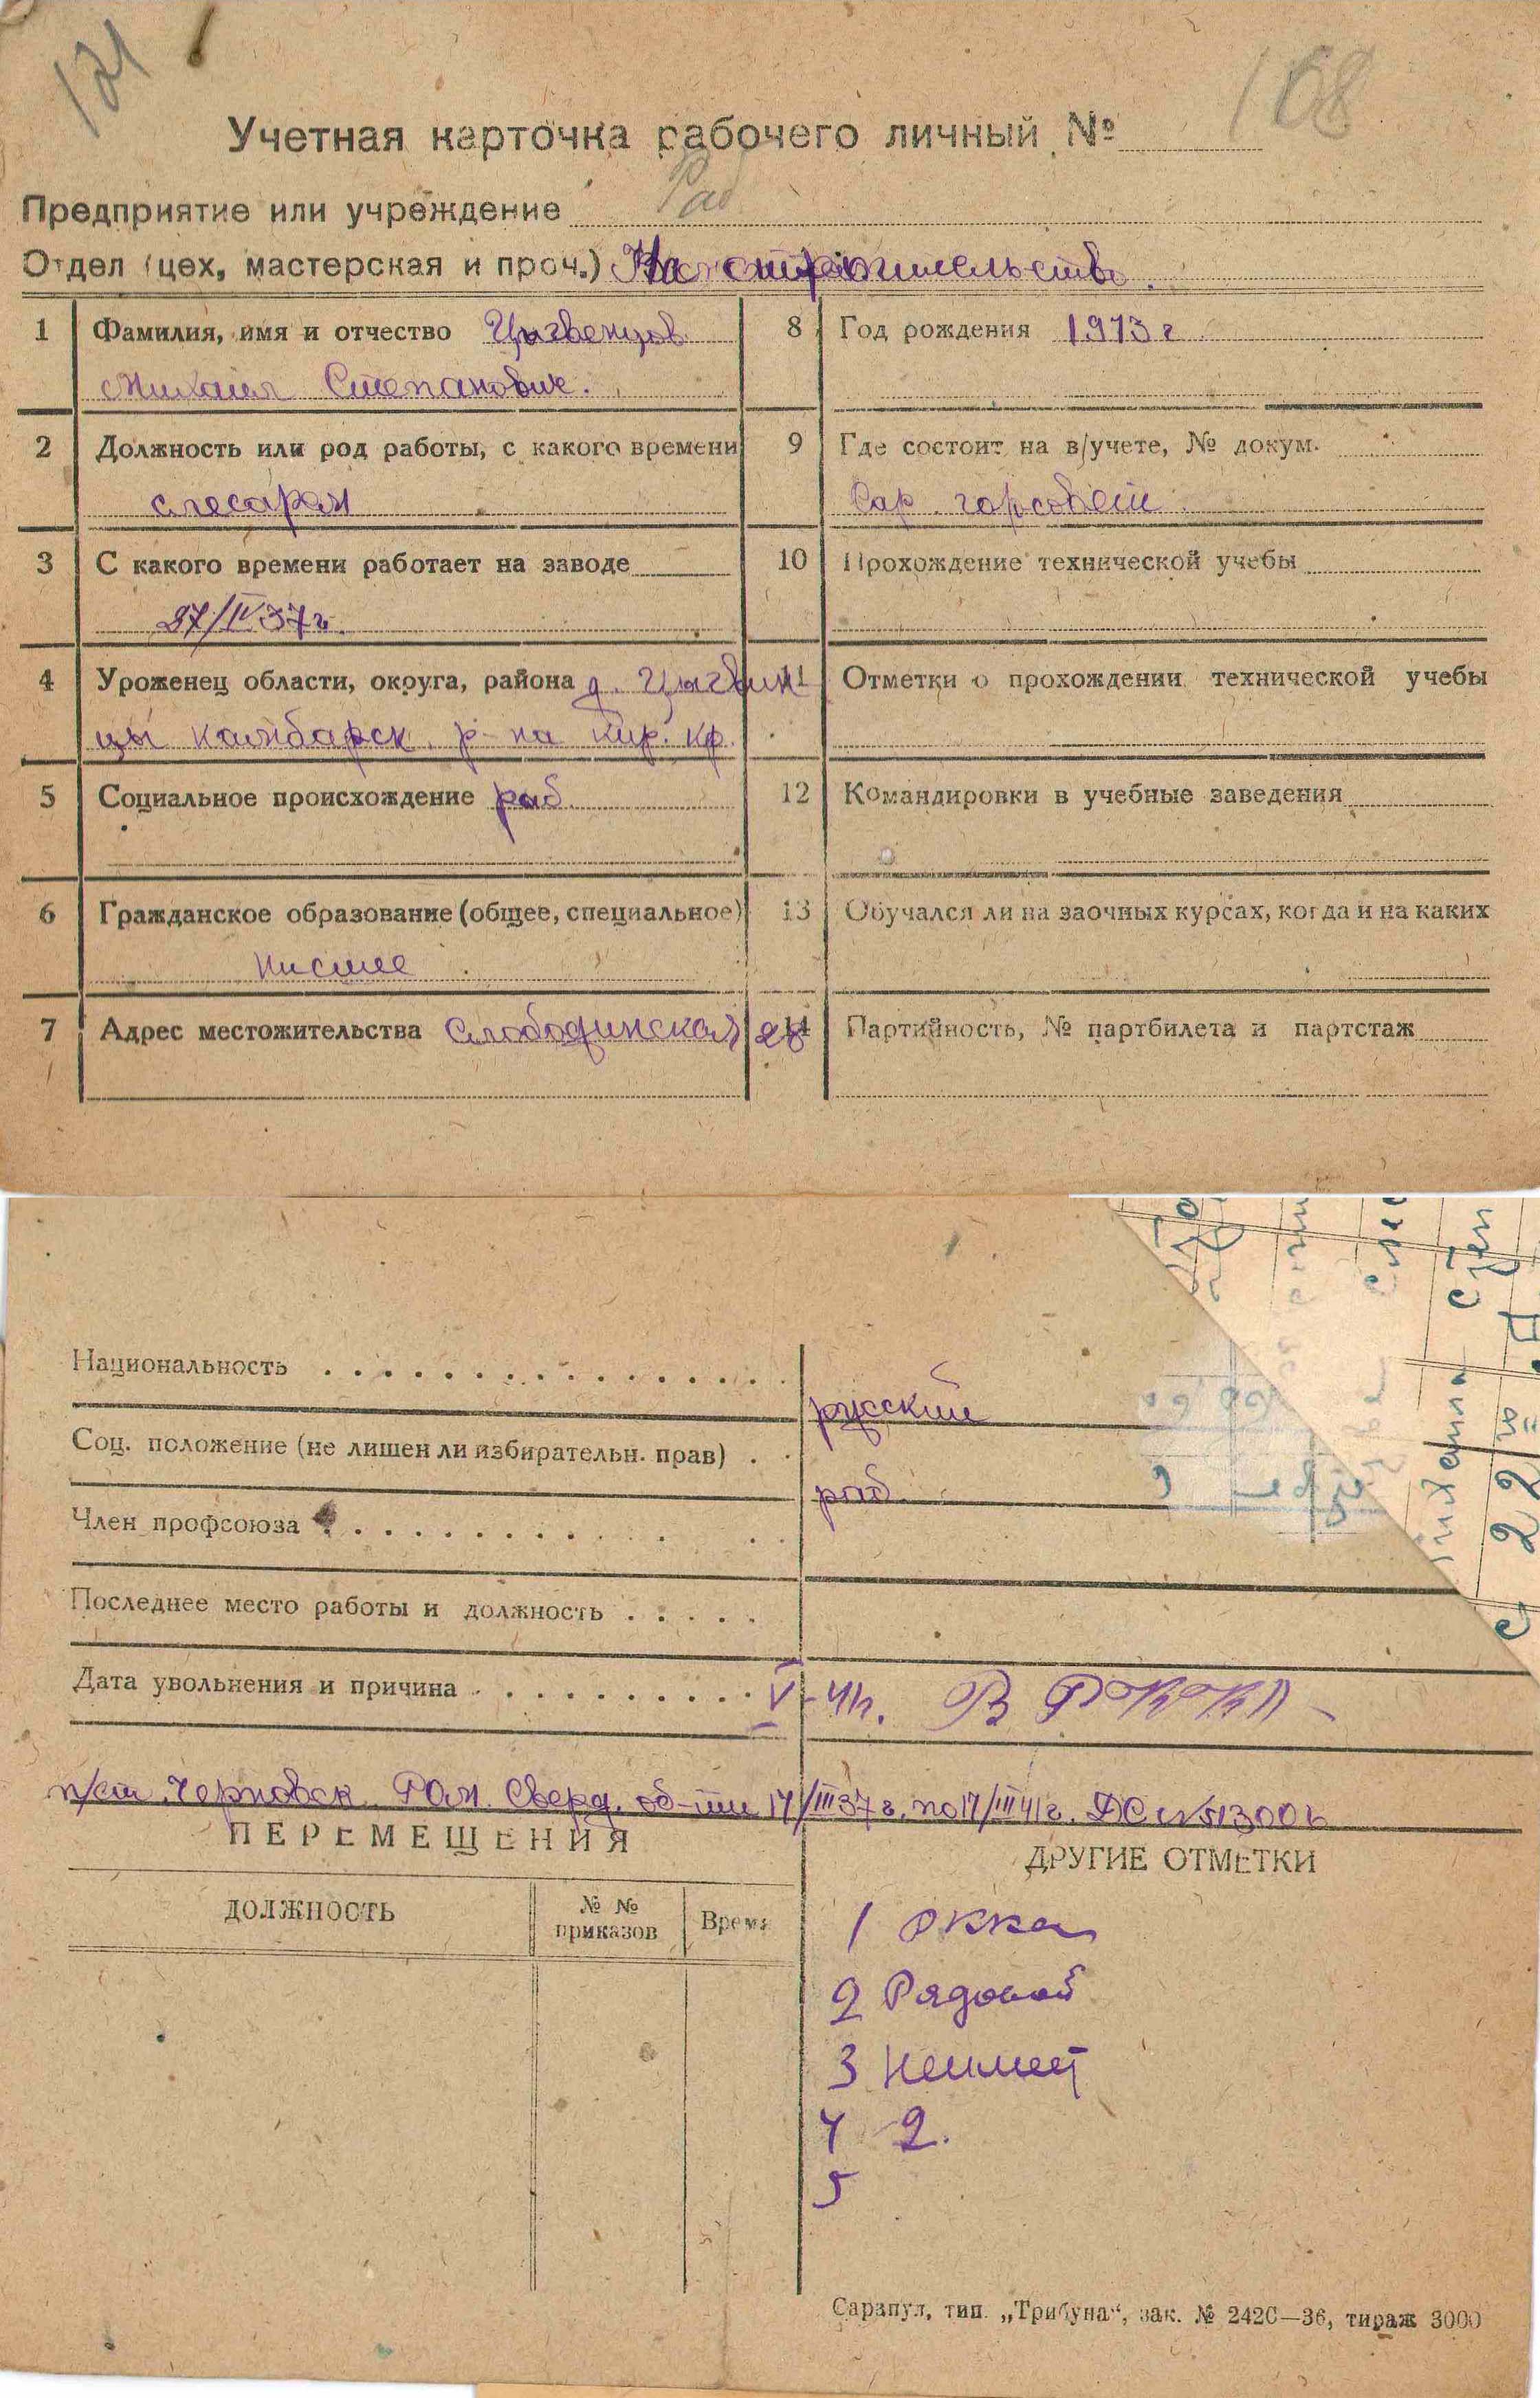 121
168
Учетная карточка рабочего личный №
Предприятие или учреждение Раб
Отдел (цех, мастерская и проч.) На строительство.
1 Фамилия, имя и отчество Цыгвенцов
Михаил Степанович.
2 Должность или род работы, с какого времени
слесарем
3 С какого времени работает на заводе
27/IV 37г.
4 Уроженец области, округа, района д. Цыгвин
цы камбарск. р-на кир. кр.
5 Социальное происхождение раб.
6 Гражданское образование (общее, специальное)
нисшее
7 Адрес местожительства Слободинская 28
8 Год рождения 1913 г
9 Где состоит на в/учете, № докум.
Сар. горсовет
10 Прохождение технической учебы
11 Отметки о прохождении технической учебы
12 Командировки в учебные заведения
13 Обучался ли на заочных курсах, когда и на каких
14 Партийность, № партбилета и партстаж
Национальность русский
Соц. положение (не лишен ли избирательн. прав) раб.
Член профсоюза
Последнее место работы и должность
Дата увольнения и причина V-41г. В РККА
п/ст. Черновск. РОМ. Сверд. об-сти 17/III 37г. по 17/III 41г. ДС №513006
ПЕРЕМЕЩЕНИЯ
ДОЛЖНОСТЬ
№ № приказов
Время
ДРУГИЕ ОТМЕТКИ
1 РККА
2 Рядовой
3 Неимеет
4 2.
5
Сарапул, тип. „Трибуна“, зак. № 2420—36, тираж 3000